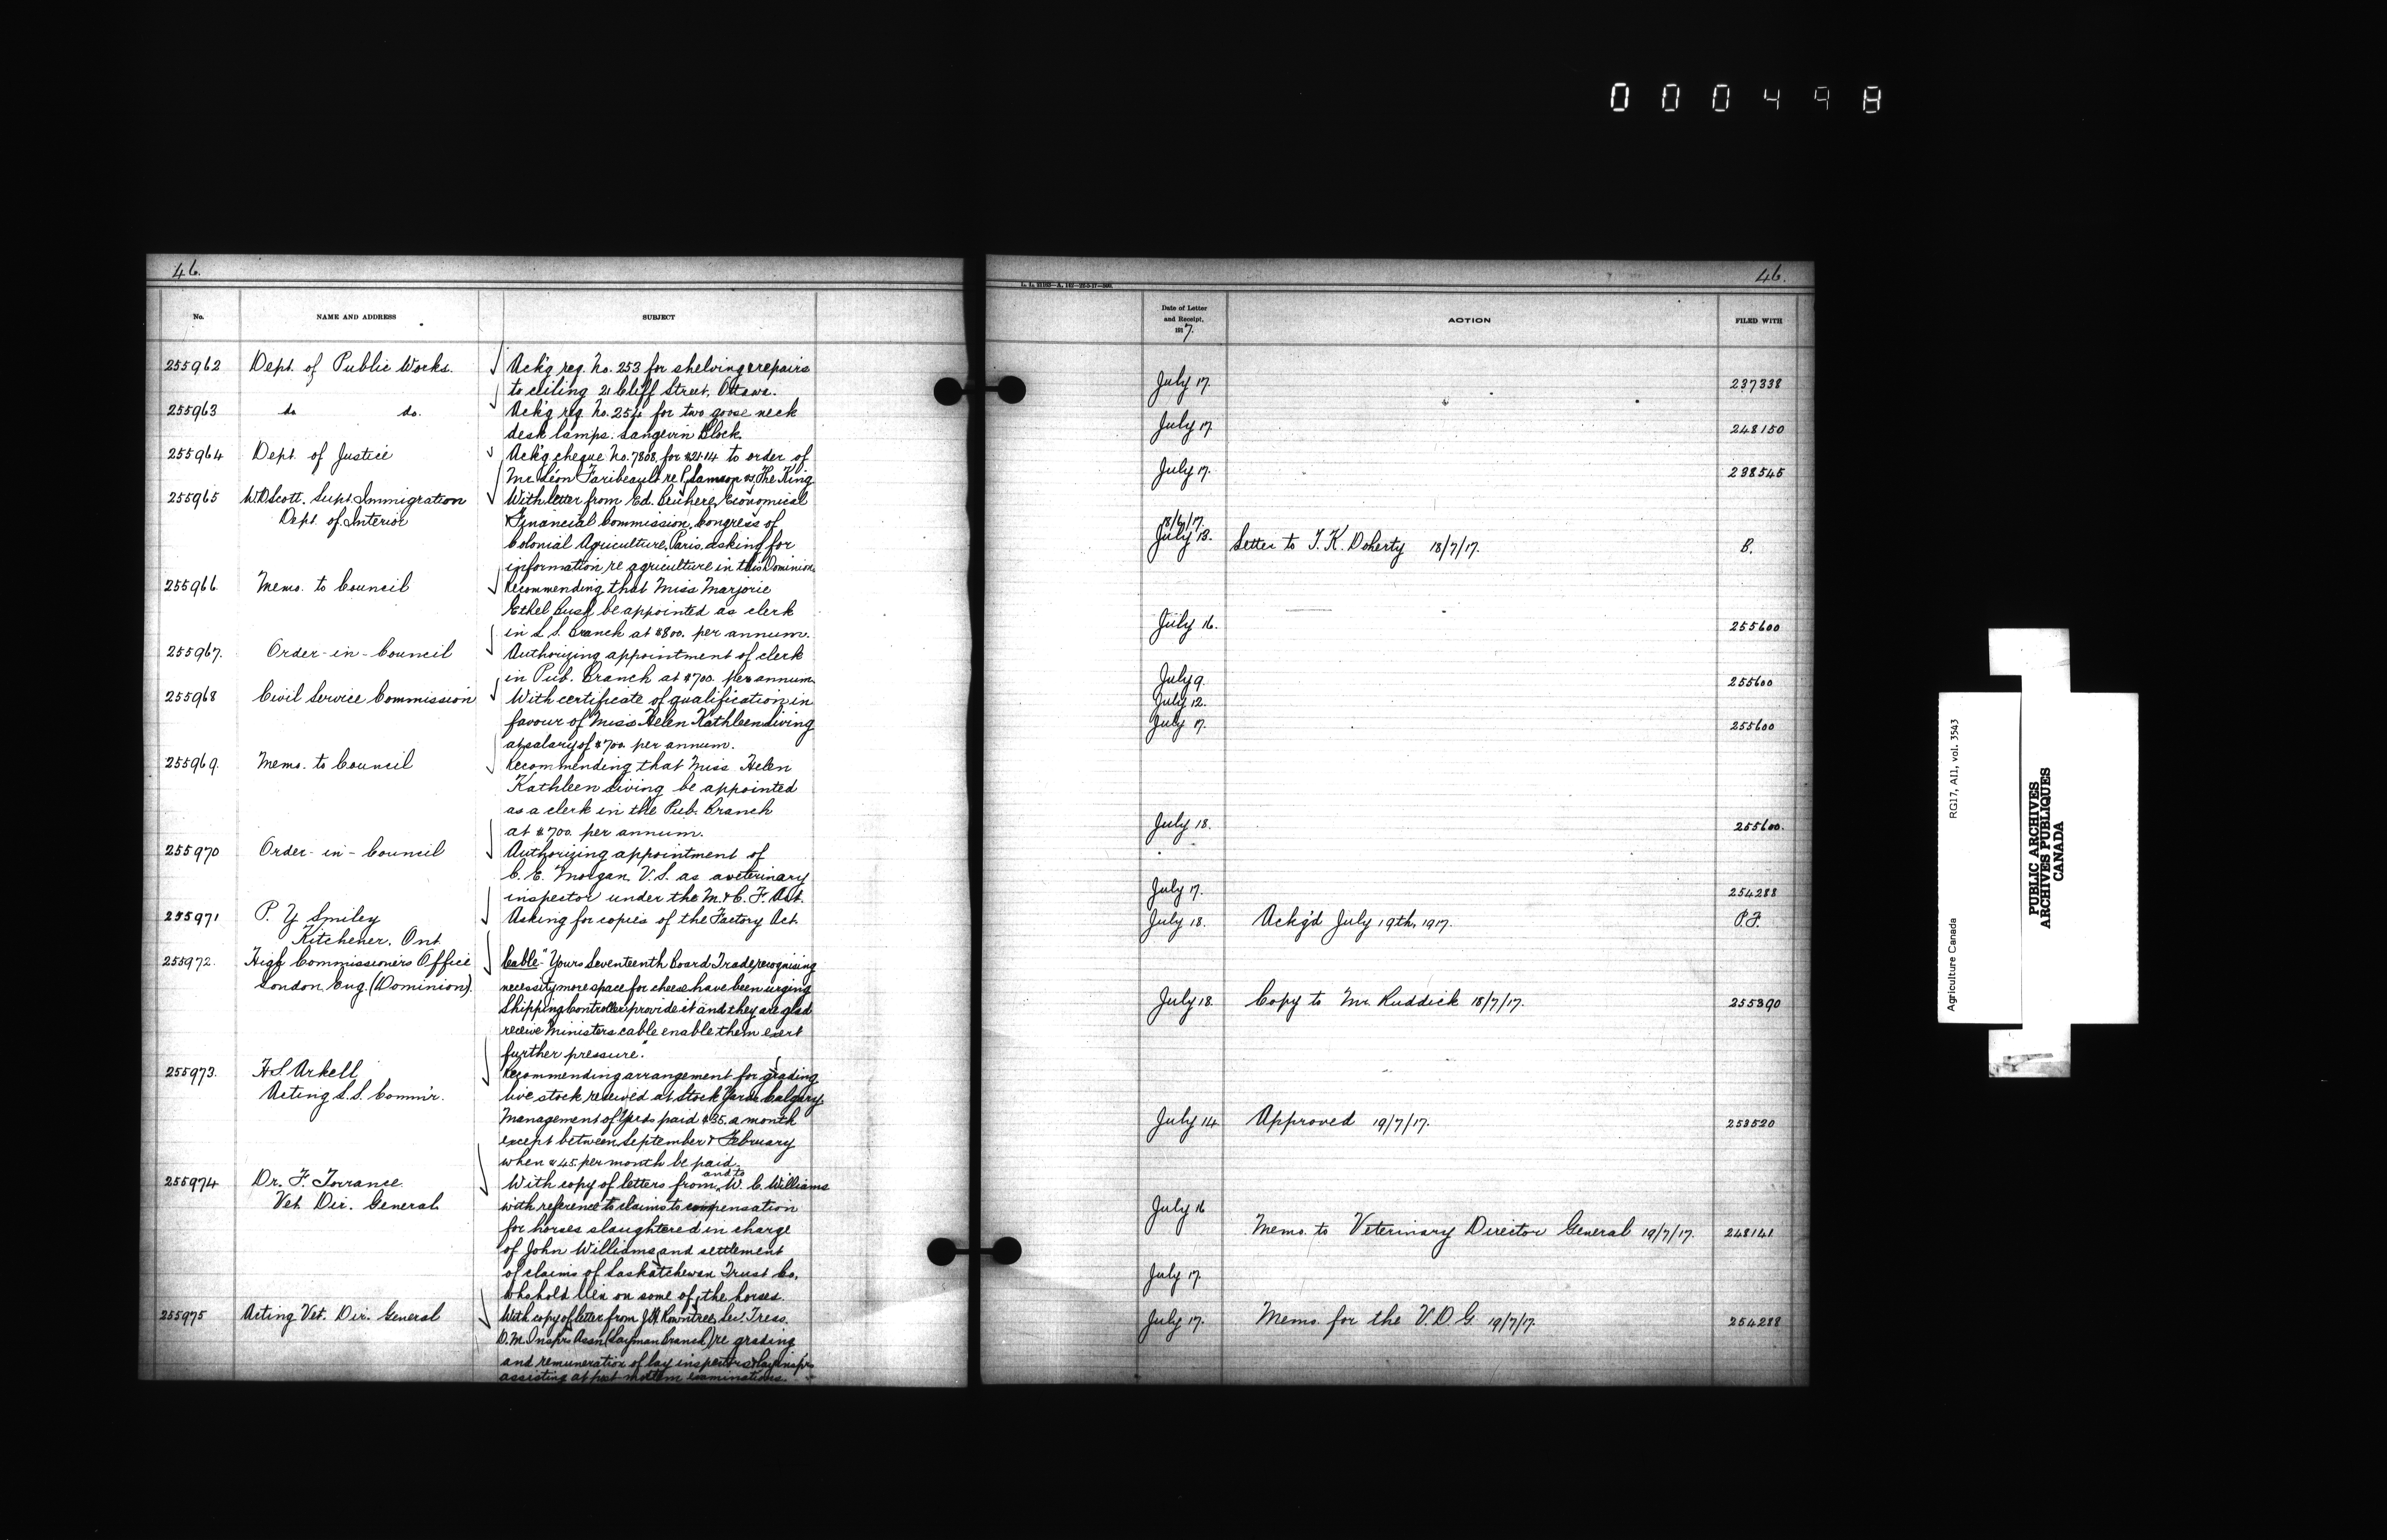 000498
46.
No.
NAME AND ADDRESS
SUBJECT
255962 Dept. of Public Works. Ack'g req. No. 253 for shelving & repairs
to ceiling 21 Cliff Street, Ottawa.
255963 do do. Ack'g req. No. 254 for two goose neck
desk lamps. Langevin Block.
255964 Dept. of Justice Ack'g cheque No. 7808, for $21.14 to order of
Mr. Léon Faribeault re P. Samson vs. The King
255965 W.D. Scott. Supt. Immigration With letter from Ed. Economical
Dept. of Interior & Financial Commission, Congress of
Colonial Agriculture, Paris, asking for
information re agriculture in this Dominion.
255966 Memo. to Council Recommending that Miss Marjorie
Ethel be appointed as clerk
in L.S. Branch at $800. per annum.
255967. Order-in-Council Authorizing appointment of clerk
in Pub. Branch at $700. per annum
255968 Civil Service Commission With certificate of qualification in
favour of Miss Helen Kathleen Living
at salary of $700. per annum.
255969 Memo. to Council Recommending that Miss Helen
Kathleen Living be appointed
as a clerk in the Pub. Branch
at $700. per annum.
255970 Order-in-Council Authorizing appointment of
C. E. Morgan, V.S. as a veterinary
inspector under the M. & C. F. Act.
255971 P. Y Smiley Asking for copies of the Factory Act.
Kitchener, Ont
255972. High Commissioners Office Cable- "Yours Seventeenth Board Trade, recognising
London, Eng. (Dominion). necessity more space for cheese have been urging
Shipping Controller provide it and they are glad
receive Ministers cable enable them exert
further pressure."
255973. H S Arkell Recommending arrangement for grading
Acting L.S. Comm'r. live stock received at Stock Yards Calgary
Management of Yards paid $35. a month
except between September & February
when $45 per month be paid.
255974 Dr. F. Torrance With copy of letters from and to W. C. Williams
Vet. Dir. General with reference to claims to compensation
for horses slaughtered in charge
of John Williams, and settlement
of claims of Saskatchewan Trust Co.
who hold lien on some of the horses.
255975 Acting Vet. Dir. General With copy of letter from J.H. Rowntree, Sec. Treas.
D.M. Insp'rs Assn. (Layman Branch) re grading
and remuneration of lay inspectors & lay insp'rs
assisting at post mortem examinations.
46.
Date of Letter
and Receipt,
1917.
ACTION
FILED WITH
July 17. 237338
July 17 248150
July 17. 298545
18/6/17.
July 13. Letter to T. K. Doherty 18/7/17. B.
July 16. 255600
July 9. 255600
July 12.
July 17. 255600
July 18. 255600.
July 17. 254288
July 18. Ackg'd July 19th, 1917. P.F.
July 18. Copy to Mr. Ruddick 18/7/17. 255390
July 14 Approved 19/7/17. 253520
July 16
Memo. to Veterinary Director General 19/7/17. 248141
July 17.
July 17. Memo. for the V.D.G. 19/7/17. 254288
Agriculture Canada RG17, AI1, vol. 3543
PUBLIC ARCHIVES
ARCHIVES PUBLIQUES
CANADA